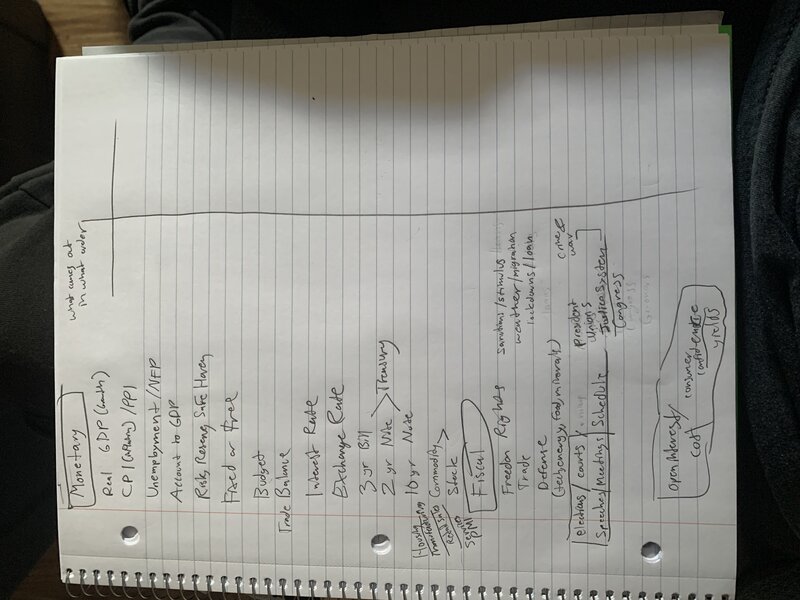 Monetary
what comes at
in what order
Real GDP (
CPI (inflation) / PPI
Unemployment / NFP
Account to GDP
Risky, Reserve, Safe Haven
Fixed or free
Budget
Trade Balance
Interest Rate
Exchange Rate
3 yr Bill
2 yr Note > Treasury
10 yr Note
Housing
Manufacturing
Retail Sales
Service
PMI
Commodity
Stock >
Fiscal
Freedom Rights
Trade
Defense
sanctions / stimulus
weather / migration
lockdowns / loan
(tech, energy, food, minerals)
crime &
war
elections / courts /
Speeches / Meetings / Schedule
president
unions
Justice System
Congress
Open Interest /
COT
consumer
confidence
yields